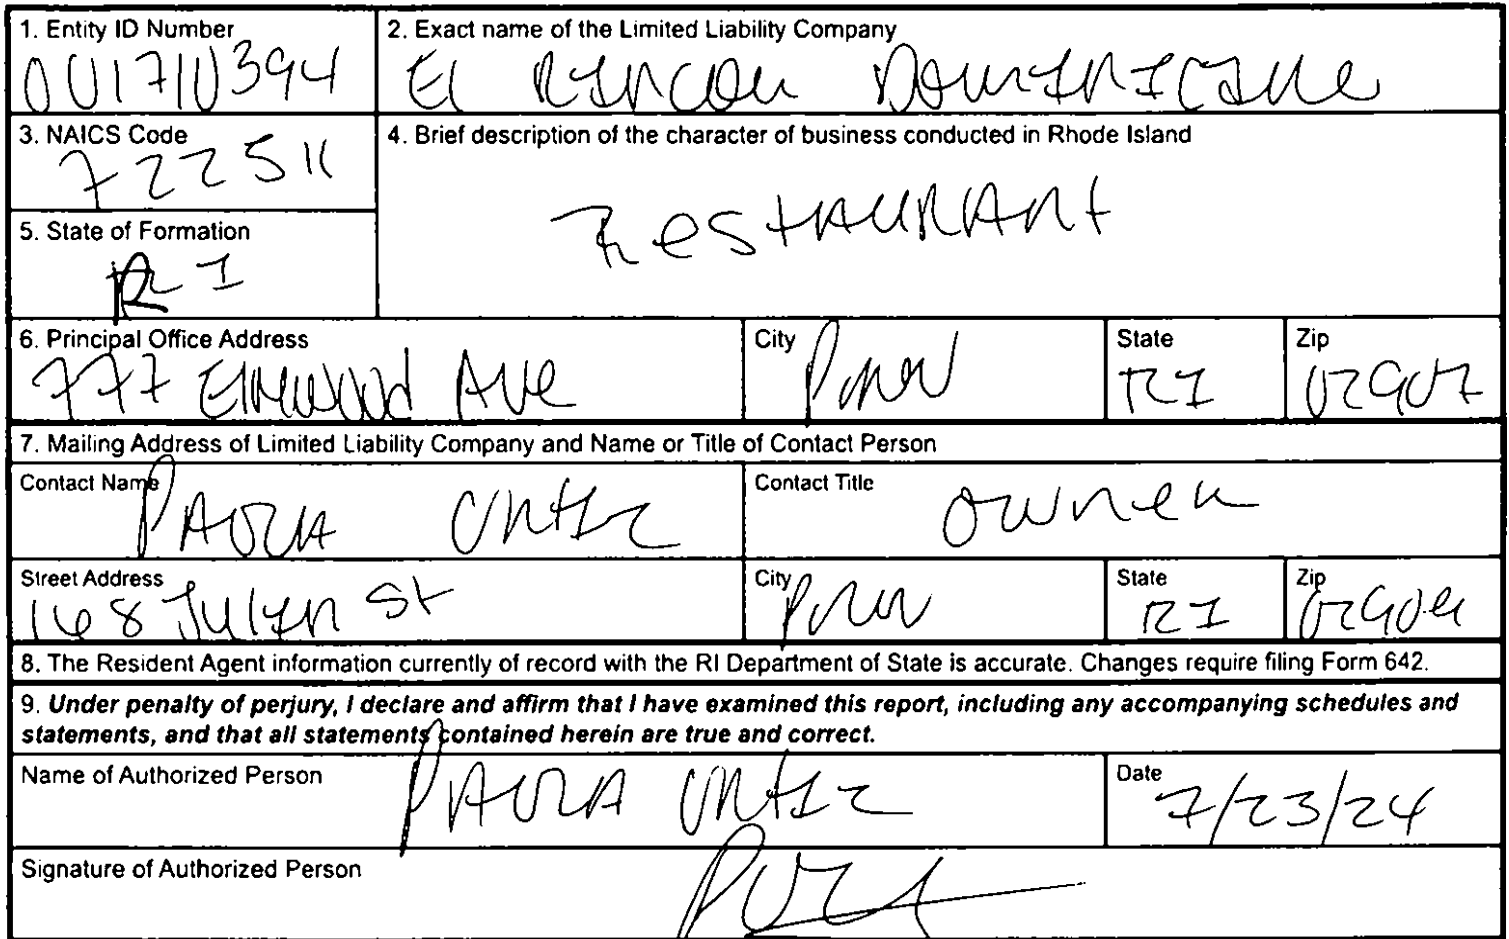 1. Entity ID Number
001710394
2. Exact name of the Limited Liability Company
El Rincon Dominicano
3. NAICS Code
722511
4. Brief description of the character of business conducted in Rhode Island
Restaurant
5. State of Formation
RI
6. Principal Office Address
777 Elmwood Ave
City
Prov
State
RI
Zip
02907
7. Mailing Address of Limited Liability Company and Name or Title of Contact Person
Contact Name
Paola Ortiz
Contact Title
Owner
Street Address
168 St
City
Prov
State
RI
Zip
8. The Resident Agent information currently of record with the RI Department of State is accurate. Changes require filing Form 642.
9. Under penalty of perjury, I declare and affirm that I have examined this report, including any accompanying schedules and
statements, and that all statements contained herein are true and correct.
Name of Authorized Person
Paola Ortiz
Date
7/23/24
Signature of Authorized Person